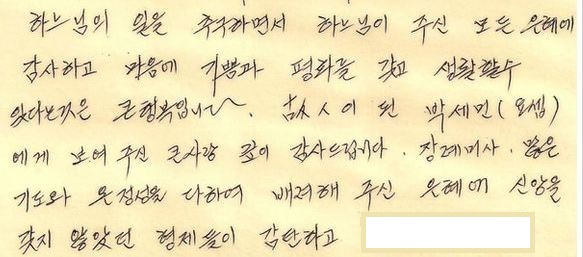 하느님의 일을 추구하면서 하느님이 주신 모든 은혜에
감사하고 마음에 기쁨과 평화를 갖고 생활할수
있다는것은 큰행복입니다. 이 된 박세민(요셉)
에게 보여 주신 큰사랑 깊이 감사드립니다. 장례미사. 많은
기도와 온정성을 다하여 배려해 주신 은혜에 신앙을
갖지 않았던 형제들이 감탄하고